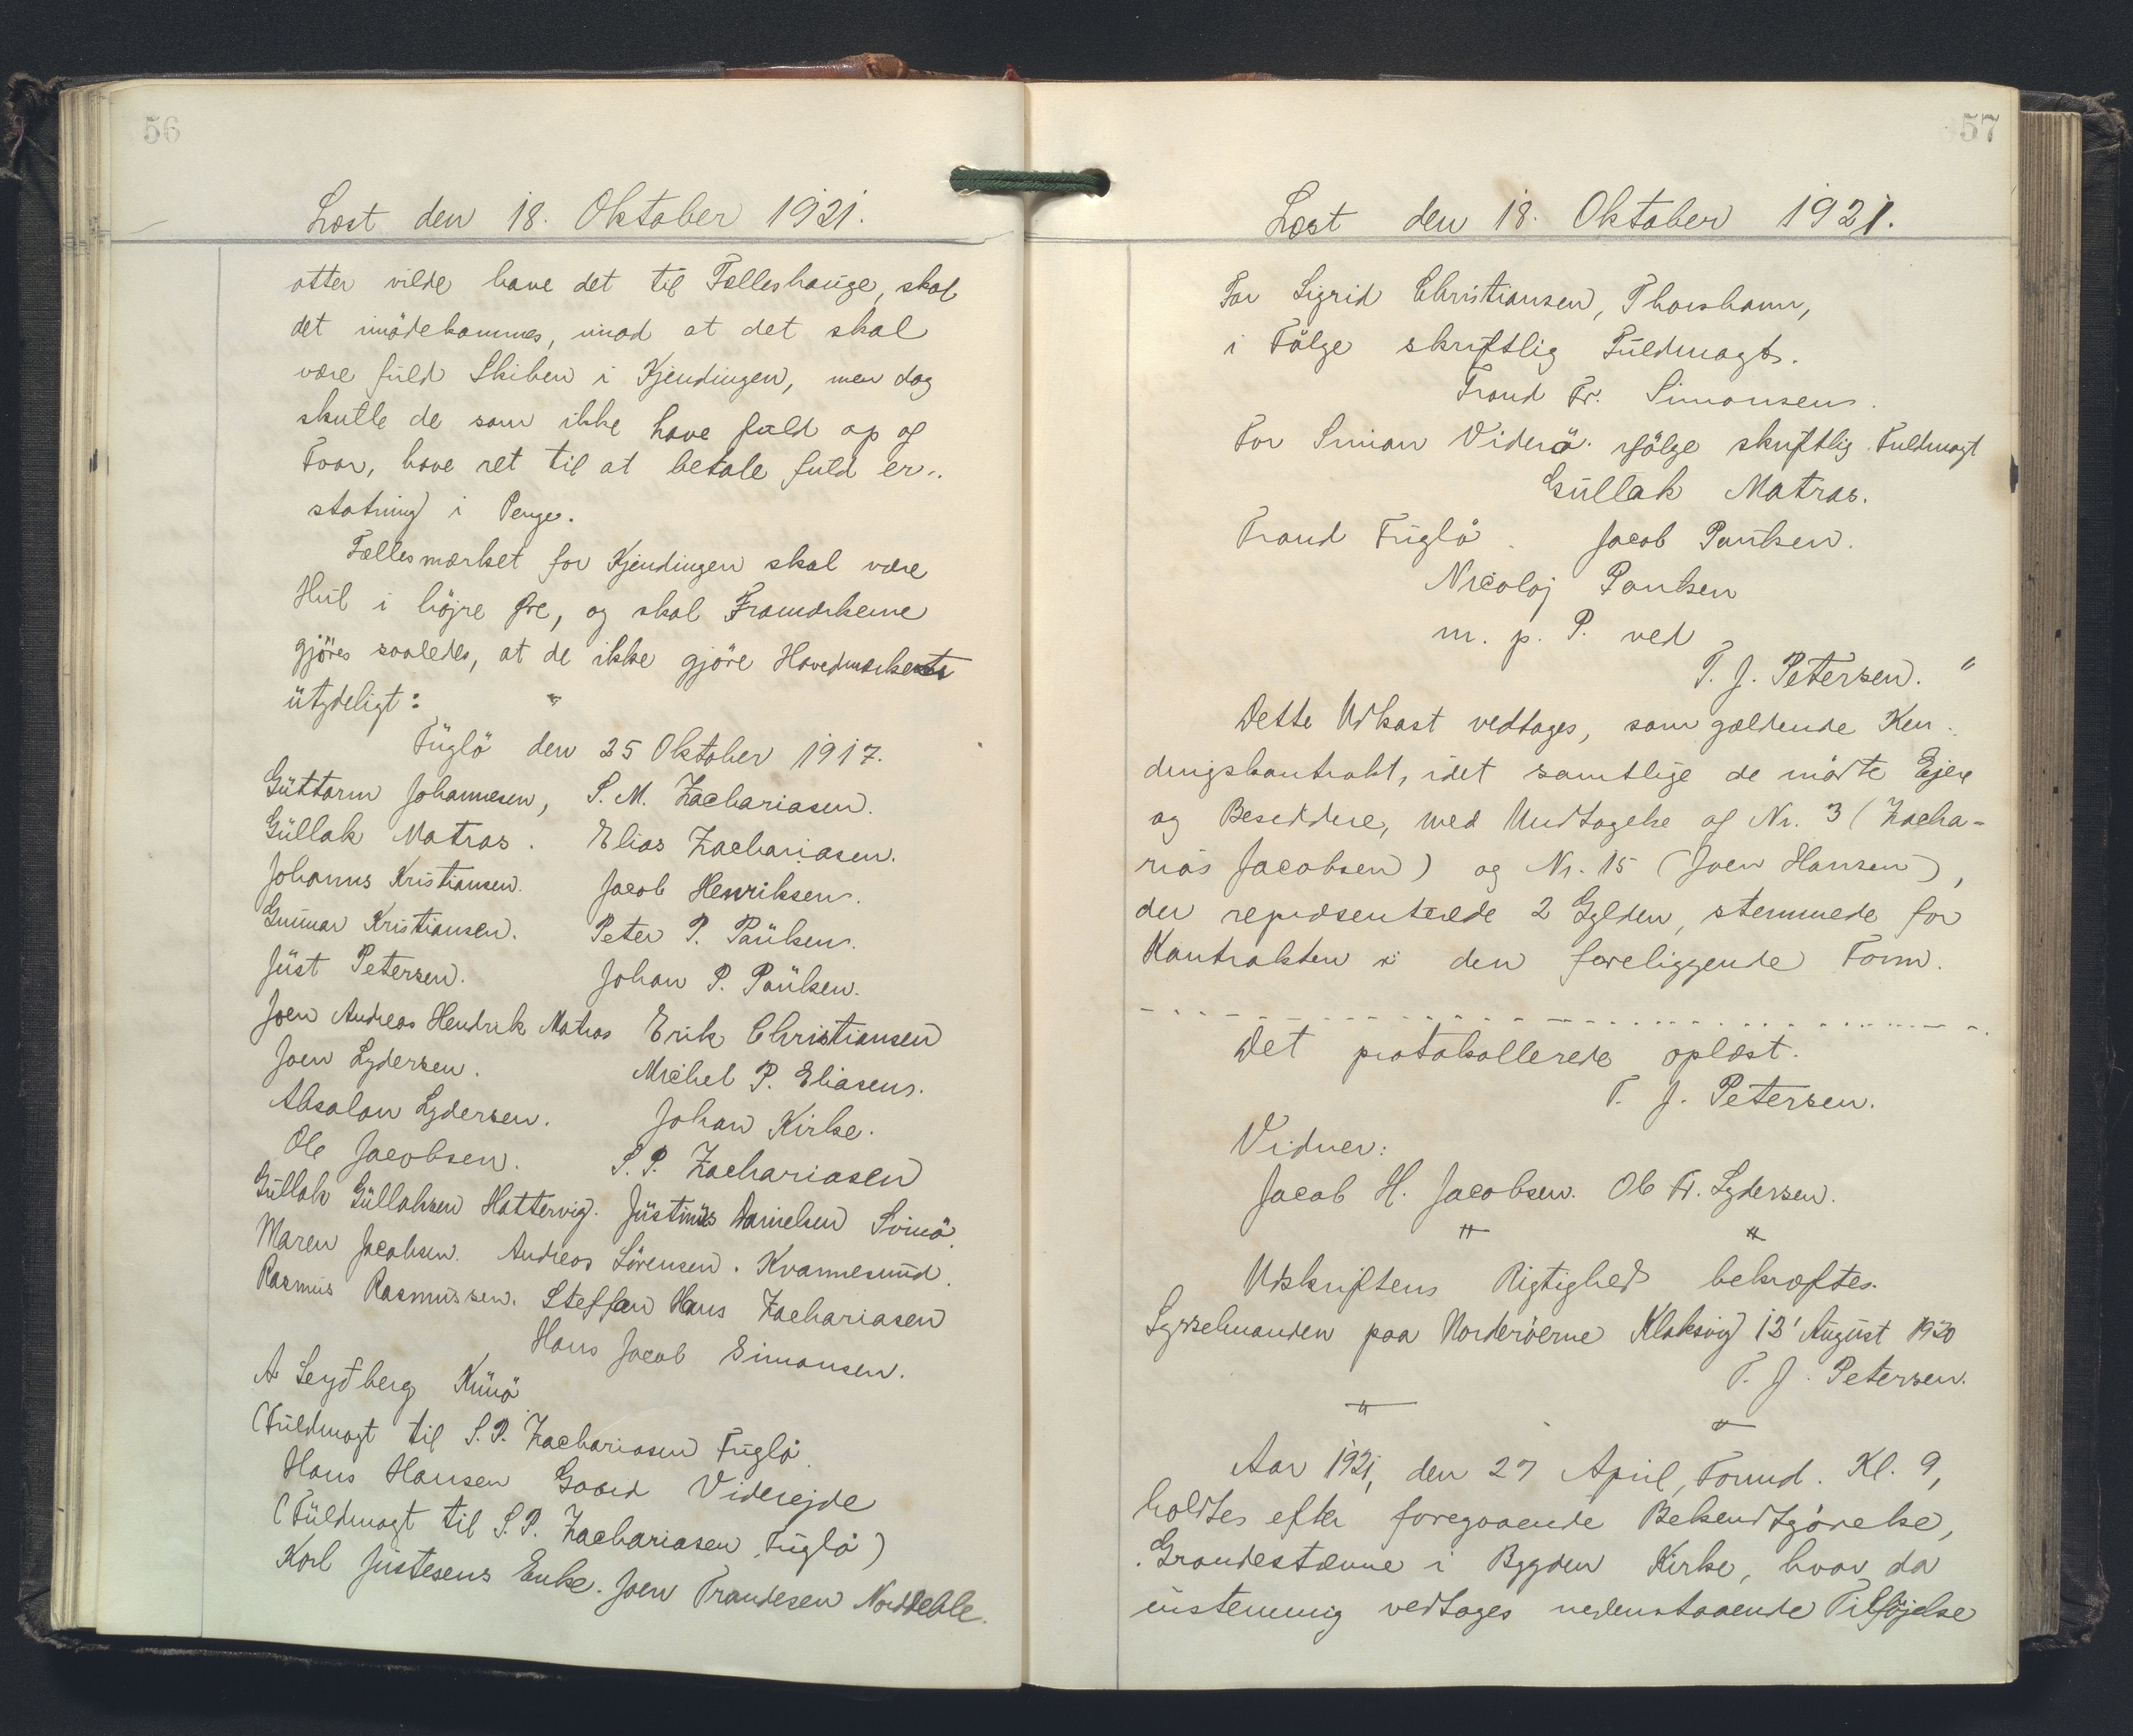 56
Læst den 18. Oktober 1921.
atter vilde have det til Fælleshauge, skal
det imödekommes, imod at det skal
være fuld Skiben i Kjendingen, men dog
skulle de som ikke have fuld op af
Foar, have ret til at betale fuld er-
statning i Penge.
Fællesmærket for Kjendingen skal være
Hul i höjre Øre, og skal Framærkerne
gjöres saaledes, at de ikke gjöre Hovedmærket
utydeligt:
Fuglö den 25 Oktober 1917.
Guttorm Johannesen, S. M. Zachariasen.
Gullak Matras. Elias Zachariasen.
Johannes Kristiansen. Jacob Henriksen.
Gunnar Kristiansen. Peter P. Paulsen.
Just Petersen. Johan P. Paulsen.
Joen Andreas Hendrik Matras Erik Christiansen
Joen Lydersen. Michel P. Eliasens.
Absalon Lydersen. Johan Kirke.
Ole Jacobsen. S. P. Zachariasen
Gullak Gullaksen Hattervig. Justinus Danielsen Svinö.
Maren Jacobsen. Andreas Sörensen. Kvannesund.
Rasmus Rasmussen. Steffan Hans Zachariasen
Hans Jacob Simonsen.
A Seydberg Kunö
(Fuldmagt til S.P. Zachariasen Fuglö.
Hans Hansen Gaard Viderejde
(Fuldmagt til S.P. Zachariasen, Fuglö)
Karl Justesens Enke. Joen Trondesen Norddeble.
57
Læst den 18. Oktober 1921.
For Sigrid Christiansen, Thorshavn,
i Fölge skriftlig Fuldmagt.
Trond Fr. Simonsen.
For Simon Viderö. ifölge skriftlig Fuldmagt
Gullak Matras.
Trond Fuglö. Jacob Paulsen.
Nicolaj Poulsen
m. p. P. ved
T. J. Petersen. "
Dette Udkast vedtages, som gældende Ken-
dingskontrakt, idet samtlige de mödte Ejere
og Besiddere, med Undtagelse af Nr. 3 (Zacha-
rias Jacobsen) og Nr. 15 (Joen Hansen),
der repræsenterede 2 Gylden, stemmede for
Kontrakten i den foreliggende Form.
Det protokollerede oplæst.
T. J. Petersen.
Vidner:
Jacob H. Jacobsen. Ole Fr. Lydersen.
Udskriftens Rigtighed bekræftes.
Sysselmanden paa Norderöerne Klaksvig 13' August 1920
T. J. Petersen.
Aar 1921, den 27 April, Formd. Kl. 9,
holdtes efter foregaaende Bekendtgörelse,
Grandestævne i Bygden Kirke, hvor da
enstemmig vedtages nedenstaaende Tilföjelse